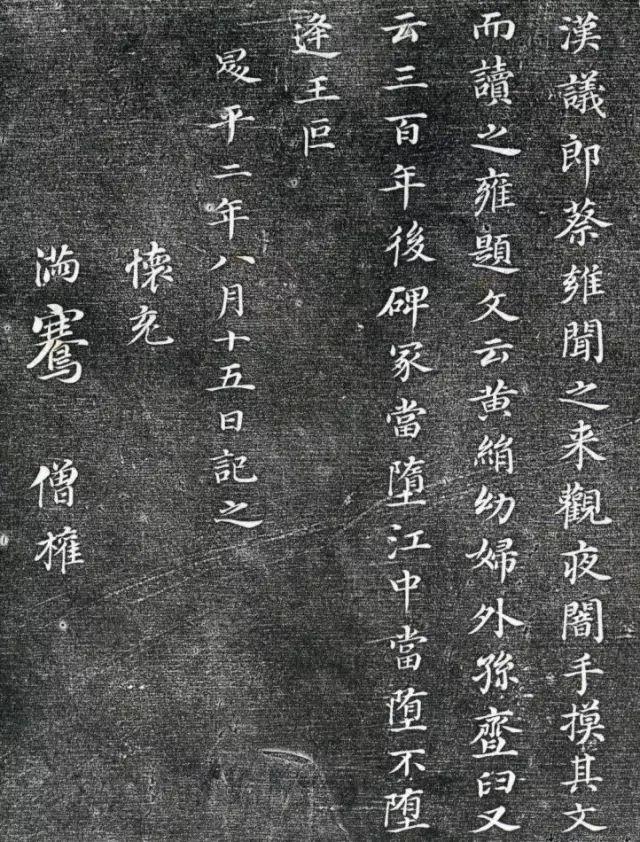 漢議郎蔡雍聞之来觀夜闇手摸其文
而讀之雍題文云黄絹幼婦外孫齏臼又
云三百年後碑冢當墮江中當墮不墮
逢王叵
升平二年八月十五日記之
懷充
滿騫 僧權